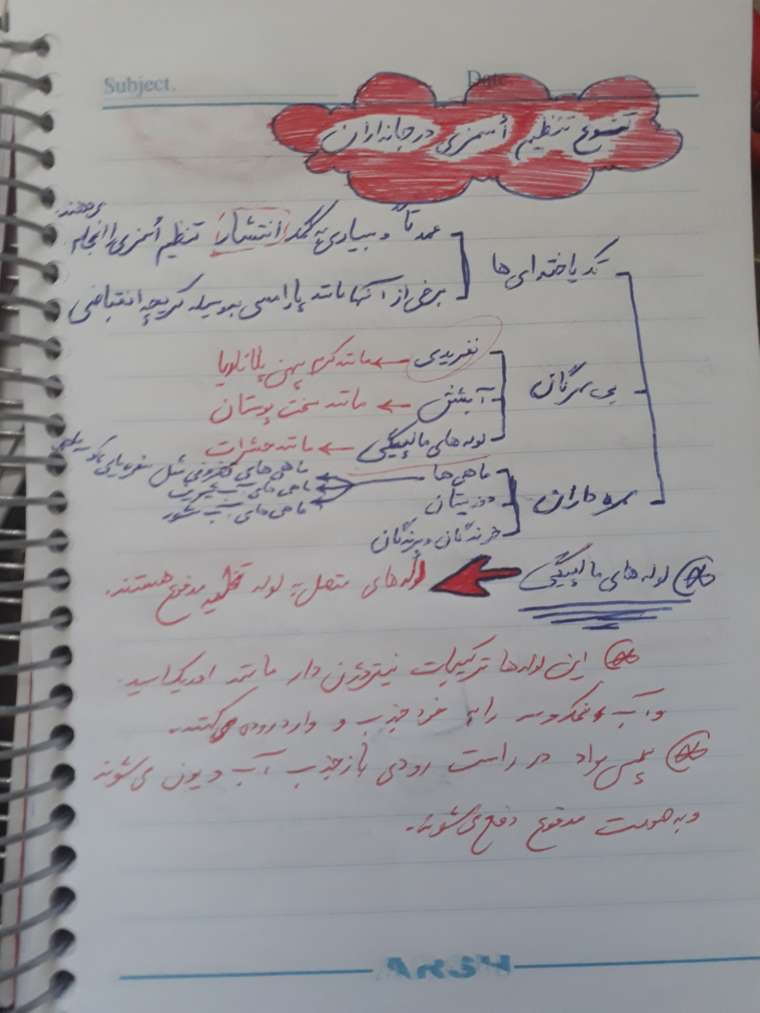 Subject.
Date
تنوع تنظیم اسمزی در جانداران
تک یاخته ای ها
عمدتاً و بسیاری به کمک انتشار تنظیم اسمزی را انجام می دهند.
برخی از آنها مانند پارامسی بوسیله کریچه انقباضی
بی مهرگان
نفریدی ← مانند کرم پهن پلاناریا
آبشش ← مانند سخت پوستان
لوله های مالپیگی ← مانند حشرات
مهره داران
ماهی ها
ماهی های غضروفی مثل سفره ماهی و کوسه ماهی
ماهی های آب شیرین
ماهی های آب شور
دوزیستان
خزندگان و پرندگان
لوله های مالپیگی ← لوله های متصل به لوله مدفوع هستند.
این لوله ها ترکیبات نیتروژن دار مانند اوریک اسید
و آب و نمک و را به خود جذب و وارد روده می کنند.
سپس مواد در راست روده ی بازجذب آب و یون می شوند
و به صورت مدفوع دفع می شوند.
ARSH